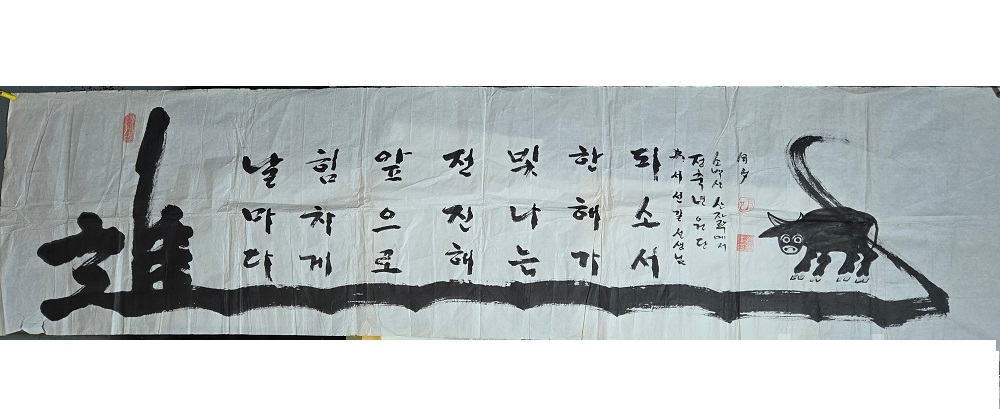 進
날마다
힘차게
앞으로
전진해
빛나는
한해가
되소서
서선길 선생님
정축년 원단
소백산 산자락에서